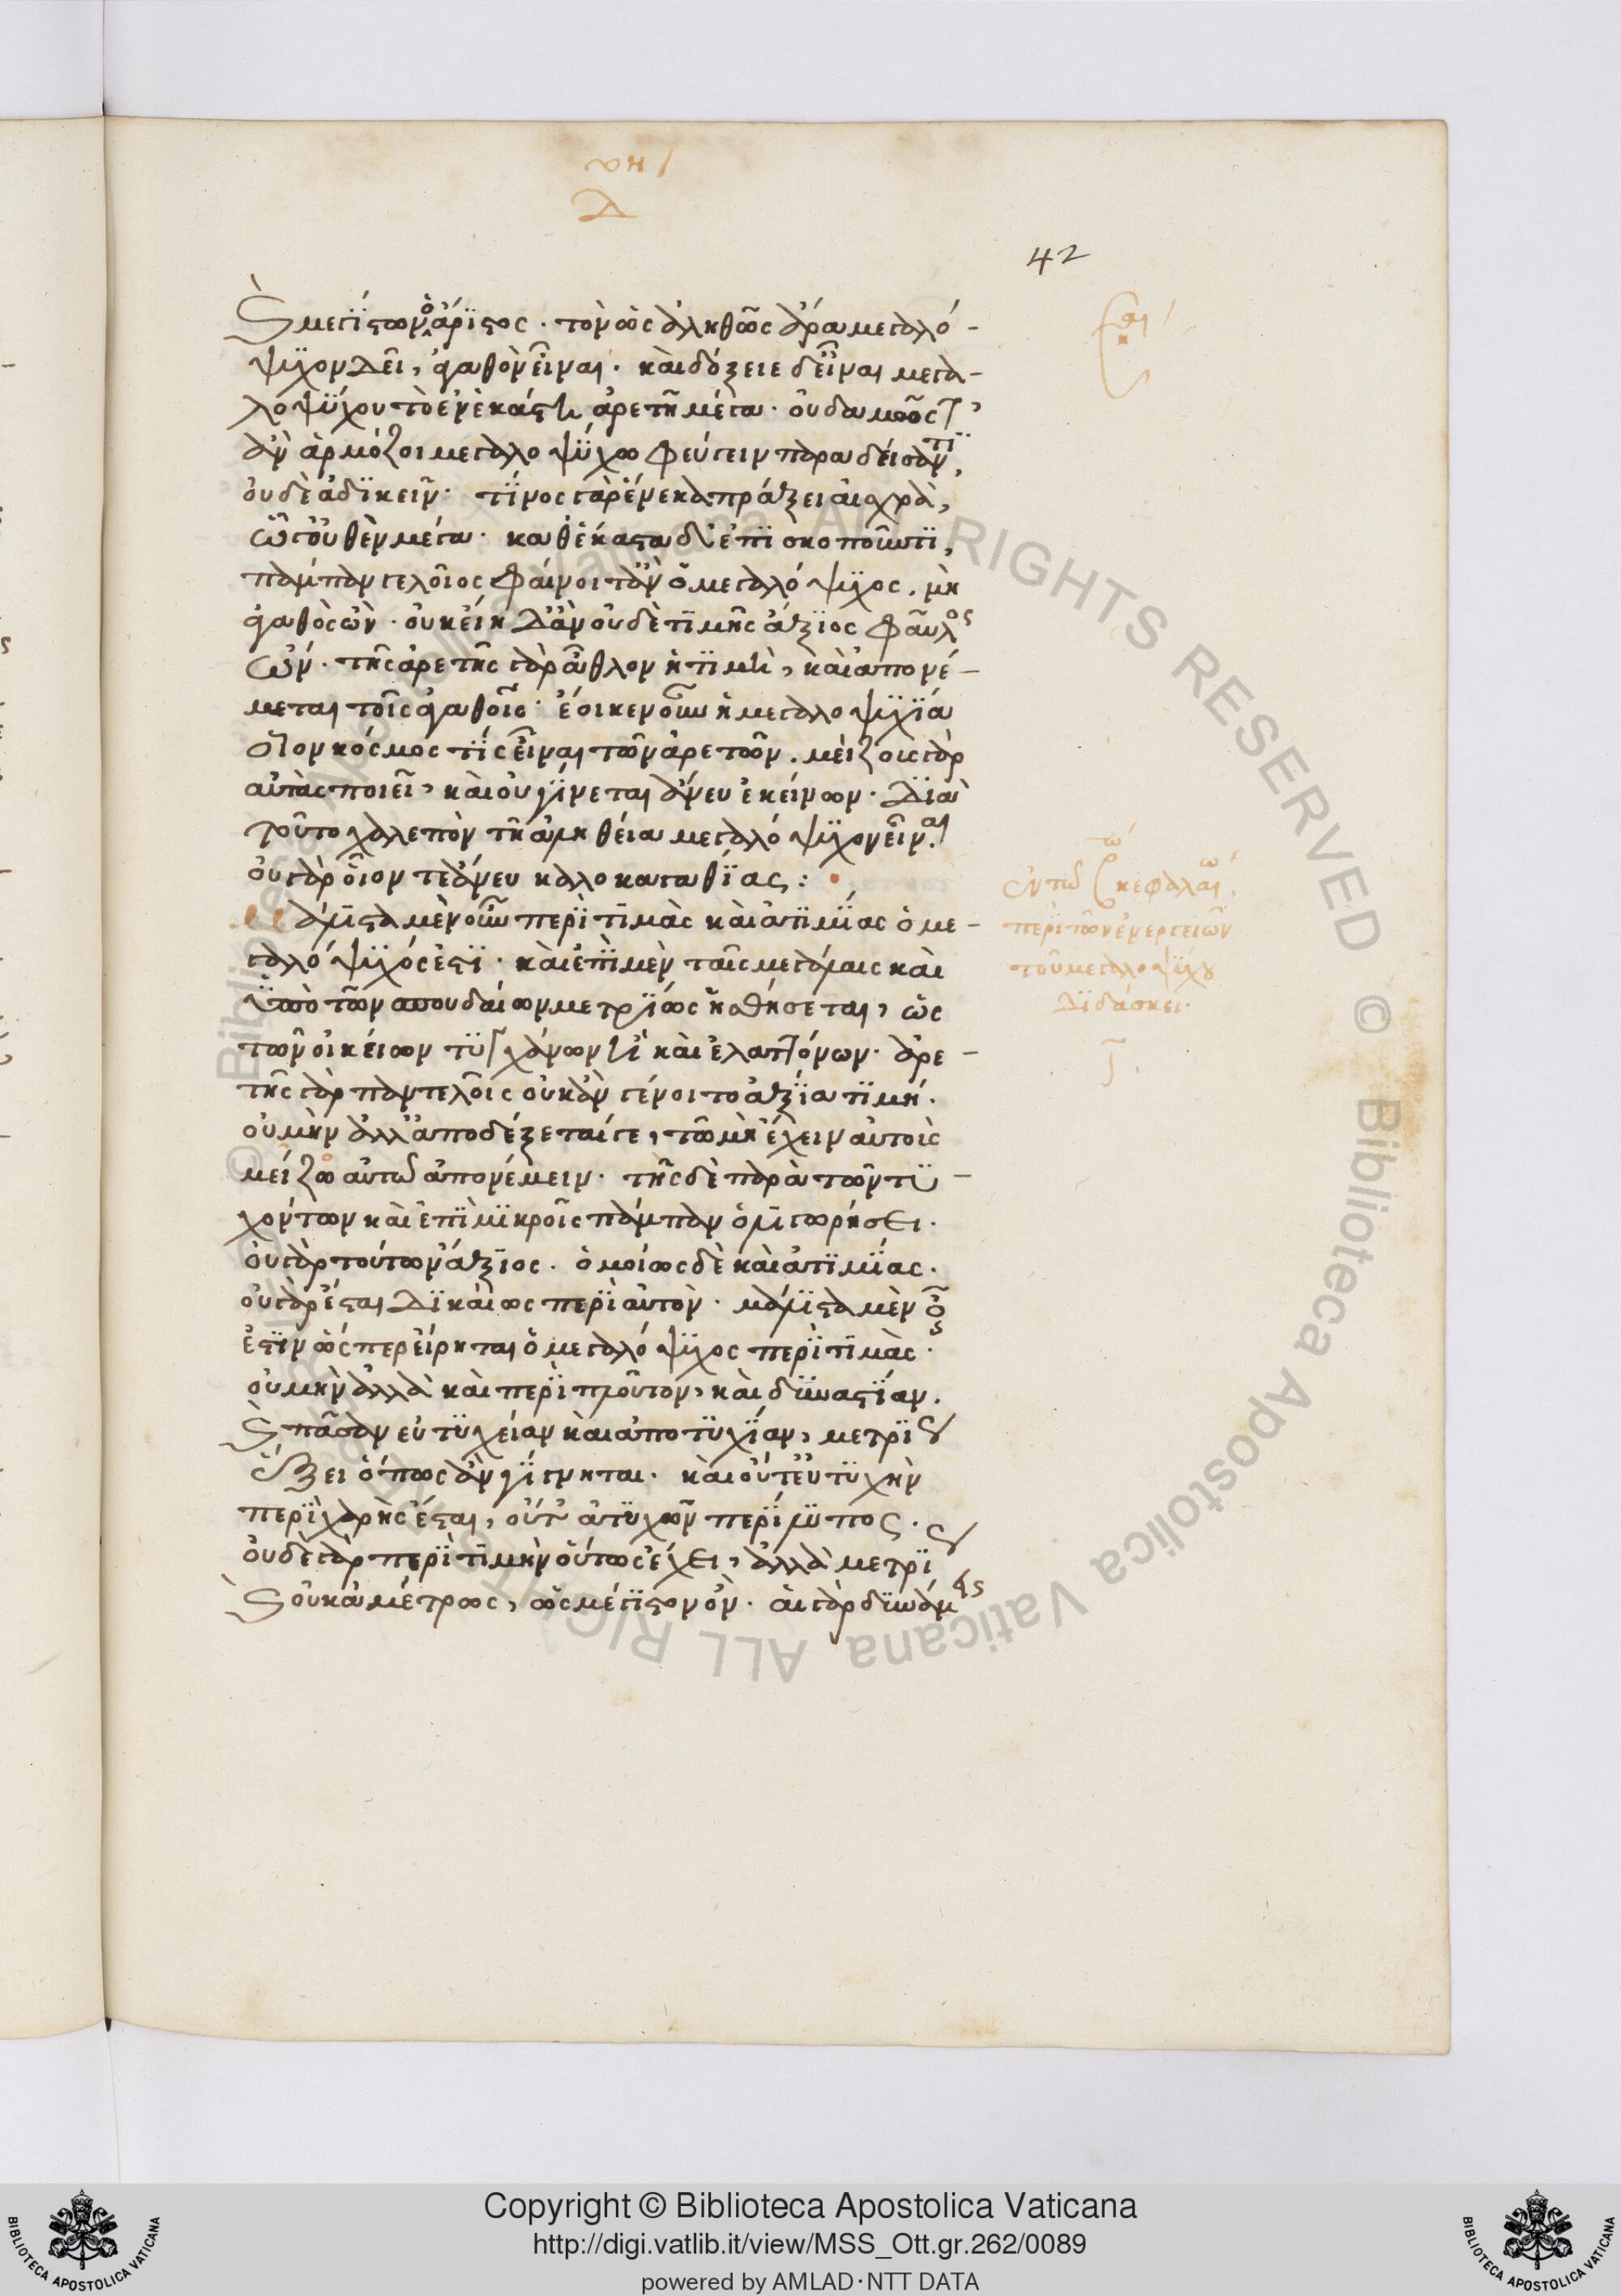 νη
Δ
42
καὶ μεγίστων ὁ ἄριστος. τὸν ὡς ἀληθῶς ἄρα μεγαλό-
ψυχον δεῖ, ἀγαθὸν εἶναι. καὶ δόξειε δ' εἶναι μεγα-
λοψύχου τὸ ἐν ἑκάστῃ ἀρετῇ μέγα. οὐδαμῶς τ'
ἂν ἁρμόζοι μεγαλοψύχω φεύγειν παρασείσαντι,
οὐδὲ ἀδικεῖν. τίνος γὰρ ἕνεκα πράξει αἰσχρὰ,
ᾧ γ' οὐθὲν μέγα. καθ' ἕκαστα δ' ἐπισκοποῦντι,
πάμπαν γελοῖος φαίνοιτ' ἂν ὁ μεγαλόψυχος, μὴ
ἀγαθὸς ὤν. οὐκ εἴη δ' ἂν οὐδὲ τιμῆς ἄξιος φαῦλος
ὤν. τῆς ἀρετῆς γὰρ ἆθλον ἡ τιμὴ, καὶ ἀπονέ-
μεται τοῖς ἀγαθοῖς. ἔοικεν οὖν ἡ μεγαλοψυχία
οἷον κόσμος τίς εἶναι τῶν ἀρετῶν. μείζους γὰρ
αὐτὰς ποιεῖ, καὶ οὐ γίνεται ἄνευ ἐκείνων. διὰ
τοῦτο χαλεπὸν τῇ ἀληθεία μεγαλόψυχον εἶναι.
οὐ γὰρ οἷόν τε ἄνευ καλοκαγαθίας:
μάλιστα μὲν οὖν περὶ τιμὰς καὶ ἀτιμίας ὁ με-
γαλόψυχός ἐστι. καὶ ἐπὶ μὲν ταῖς μεγάλαις καὶ
ὑπὸ τῶν σπουδαίων μετρίως ἡσθήσεται, ὡς
τῶν οἰκείων τυγχάνων ἢ καὶ ἐλαττόνων. ἀρε-
τῆς γὰρ παντελοῦς οὐκ ἂν γένοιτο ἀξία τιμή.
οὐ μὴν ἀλλ' ἀποδέξεταί γε, τῶ μὴ ἔχειν αὐτοὺς
μείζω αὐτῶ ἀπονέμειν. τῆς δὲ παρὰ τῶν τυ-
χόντων καὶ ἐπὶ μικροῖς πάμπαν ὀλιγωρήσει.
οὐ γὰρ τούτων ἄξιος. ὁμοίως δὲ καὶ ἀτιμίας.
οὐ γὰρ ἔσται δικαίως περὶ αὐτὸν. μάλιστα μὲν οὖν
ἐστὶν ὥσπερ εἴρηται ὁ μεγαλόψυχος περὶ τιμὰς.
οὐ μὴν ἀλλὰ καὶ περὶ πλοῦτον, καὶ δυναστίαν.
καὶ πᾶσαν εὐτυχείαν καὶ ἀποτυχίαν, μετρίως
ἕξει ὅπως ἂν γίγνηται. καὶ οὔτ' εὐτυχῶν
περιχαρὴς ἔσται, οὔτ' ἀτυχῶν περίλυπος.
οὐδὲ γὰρ περὶ τιμὴν οὕτως ἔχει, ἀλλὰ μετρίως
καὶ οὐκ ἀμέτρως, ὡς μέγιστον ὄν. αἱ γὰρ δυναστεῖαι
ἐν τῶ κεφαλαίω
περὶ τῶν ἐνεργειῶν
τοῦ μεγαλοψύχου
διδάσκει.
Copyright © Biblioteca Apostolica Vaticana
http://digi.vatlib.it/view/MSS_Ott.gr.262/0089
powered by AMLAD·NTT DATA
BIBLIOTECA APOSTOLICA VATICANA
BIBLIOTECA APOSTOLICA VATICANA
© Biblioteca Apostolica Vaticana ALL RIGHTS RESERVED © Biblioteca Apostolica Vaticana ALL RIGHTS RESERVED